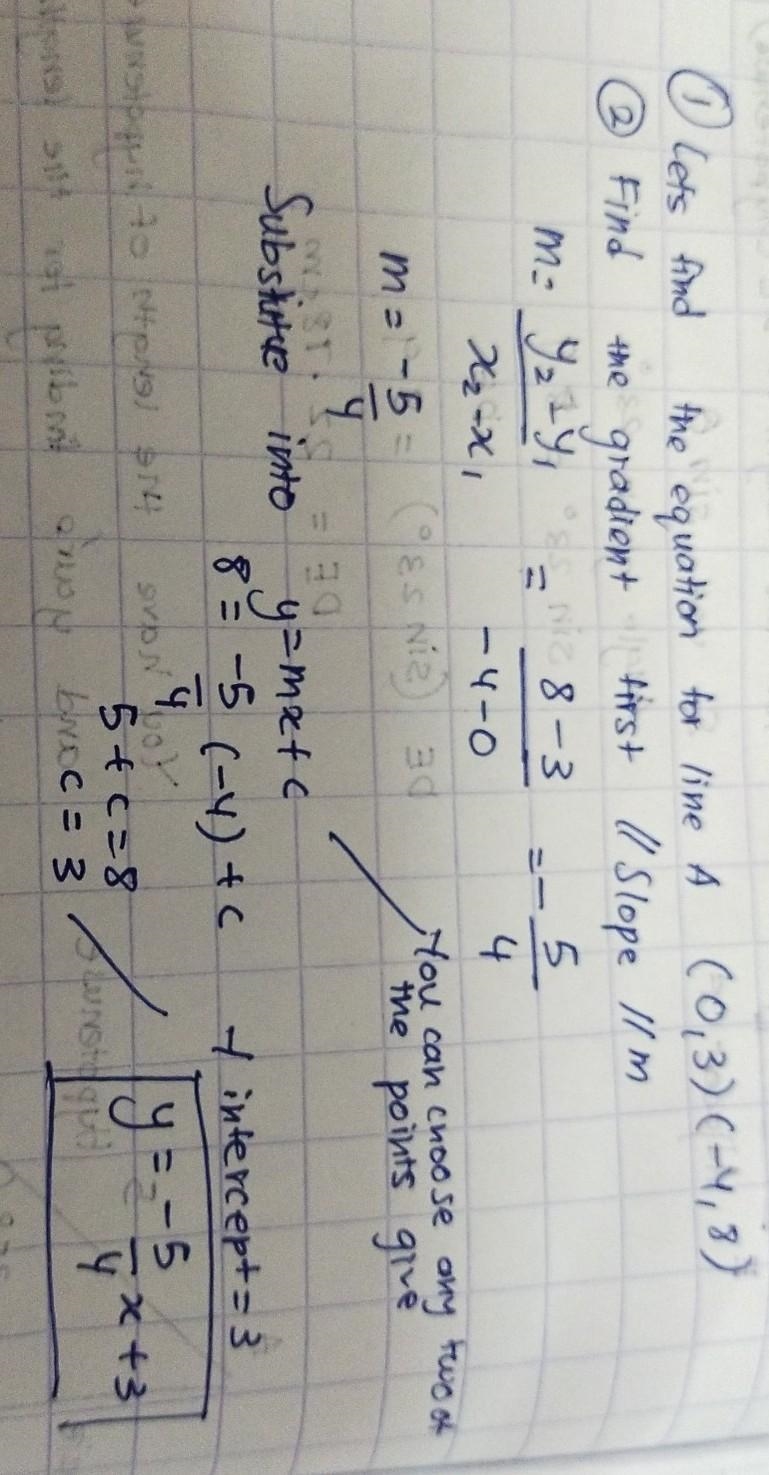 ① Lets find the equation for line A (0,3) (-4,8)
② Find the gradient first // Slope // m
m = y₂ - y₁ / x₂ - x₁ = 8 - 3 / -4 - 0 = - 5/4
m = -5/4
You can choose any two of
the points give
Substitue into y = mx + c
8 = -5/4 (-4) + c Y intercept = 3
5 + c = 8
c = 3
y = -5/4 x + 3